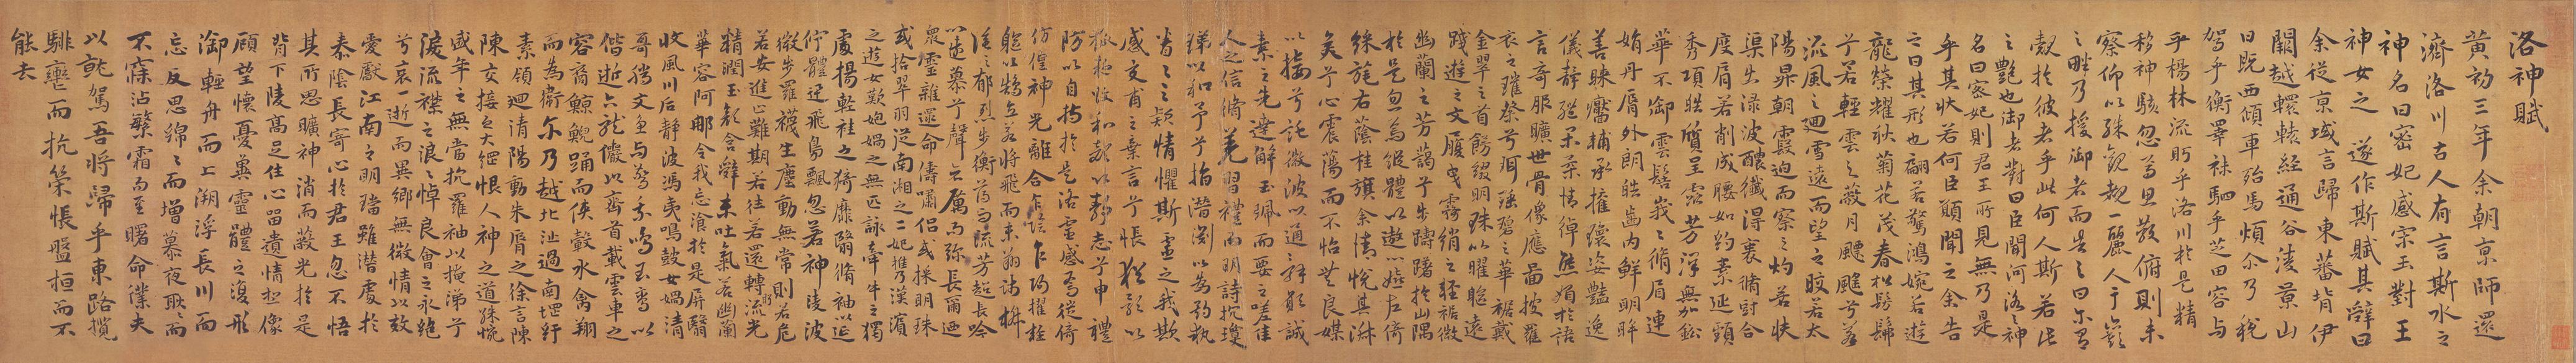 洛神賦
黃初三年余朝京師還
濟洛川古人有言斯水之
神名曰宓妃感宋玉對王
神女之 遂作斯賦其辭曰
余從京域言歸東藩背伊
闕越轘轅經通谷陵景山
日既西傾車殆馬煩尓乃稅
駕乎蘅皋秣駟乎芝田容与
乎楊林流眄乎洛川於是精
移神駭忽焉思散俯則未
察仰以殊觀覩一麗人于巖
之畔乃援御者而告之曰尓有
覿於彼者乎此何人斯若此
之艷也御者對曰臣聞河洛之神
名曰宓妃則君王所見無乃是
乎其狀若何臣願聞之余告
之曰其形也翩若驚鴻婉若遊
龍榮耀秋菊花茂春松髣髴
兮若輕雲之蔽月飄颻兮若
流風之迴雪遠而望之皎若太
陽昇朝霞迫而察之灼若芙
渠出淥波醲纖得衷脩短合
度肩若削成腰如約素延頸
秀項皓質呈露芳澤無加鉛
華不御雲髻峩峩脩眉連
娟丹脣外朗皓齒內鮮明眸
善睞靨輔承權瓌姿豔逸
儀靜體閑柔情綽態媚於語
言奇服曠世骨像應圖披羅
衣之璀粲兮珥瑤碧之華琚戴
金翠之首飾綴明珠以耀軀遠
踐遊之文履曳霧綃之輕裾微
幽蘭之芳藹兮步躊躇於山隅
於是忽焉縱體以遨以嬉左倚
綵旄右蔭桂旗余情悅其淑
美兮心震蕩而不怡無良媒
以接兮託微波以通辭願誠
素之先達解玉珮而要之嗟佳
人之信脩羌習禮而明詩抗瓊
珶以和予兮指潛淵以為期執
眷眷之款情懼斯靈之我欺
感交甫之棄言兮悵猶豫以
狐疑收和顏以靜志兮申禮
防以自持於是洛靈感焉徙倚
仿偟神光離合乍陰乍陽擢輕
軀以鶴立若將飛而未翔踐椒
塗之郁烈步蘅薄而流芳超長吟
以遠慕兮聲哀厲而彌長爾迺
眾靈雜遝命儔嘯侶或採明珠
或拾翠羽從南湘之二妃攜漢濱
之遊女歎匏媧之無匹詠牽牛之獨
處揚輕袿之猗靡翳脩袖以延
佇體迅飛鳧飄忽若神陵波
微步羅襪生塵動無常則若危
若安進止難期若往若還轉眄流光
精潤玉顏含辭未吐氣若幽蘭
華容阿那令我忘飡於是屏翳
收風川后靜波馮夷鳴鼓女媧清
歌騰文魚以警乘鳴玉鸞以
偕逝六龍儼以齊首載雲車之
容裔鯨鯢踊而俠轂水禽翔
而為衛尓乃越北沚過南岡紆
素領迴清陽動朱脣之徐言陳
陳交接之大綱恨人神之道殊怨
盛年之無當抗羅袖以掩涕兮
淚流襟之浪浪悼良會之永絕
兮哀一逝而異鄉無微情以效
愛獻江南之明璫雖潛處於
太陰長寄心於君王忽不悟
其所思曠神消而蔽光於是
背下陵高足往心留遺情想像
顧望懷憂冀靈體之復形
御輕舟而上溯浮長川而
忘反思綿綿而增慕夜耿耿而
不寐沾繁霜而至曙命僕夫
以就駕吾將歸乎東路攬
騑轡而抗策悵盤桓而不
能去